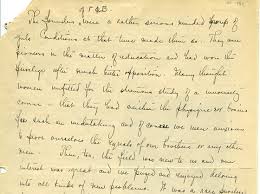 The founders were a rather serious minded group of
girls. Conditions at that time made them so. They were
pioneers in the matter of education and had won the
privilege after much bitter opposition. Many thought
women unfitted for the strenuous study of a university
course - that they had neither the physique nor
for such an undertaking, and of course we were anxious
to prove ourselves the equals of our brothers or any other
men. Then, too, the field was new to us and our
interest was great and we pored and enjoyed delving
into all kinds of new problems. It was a rare